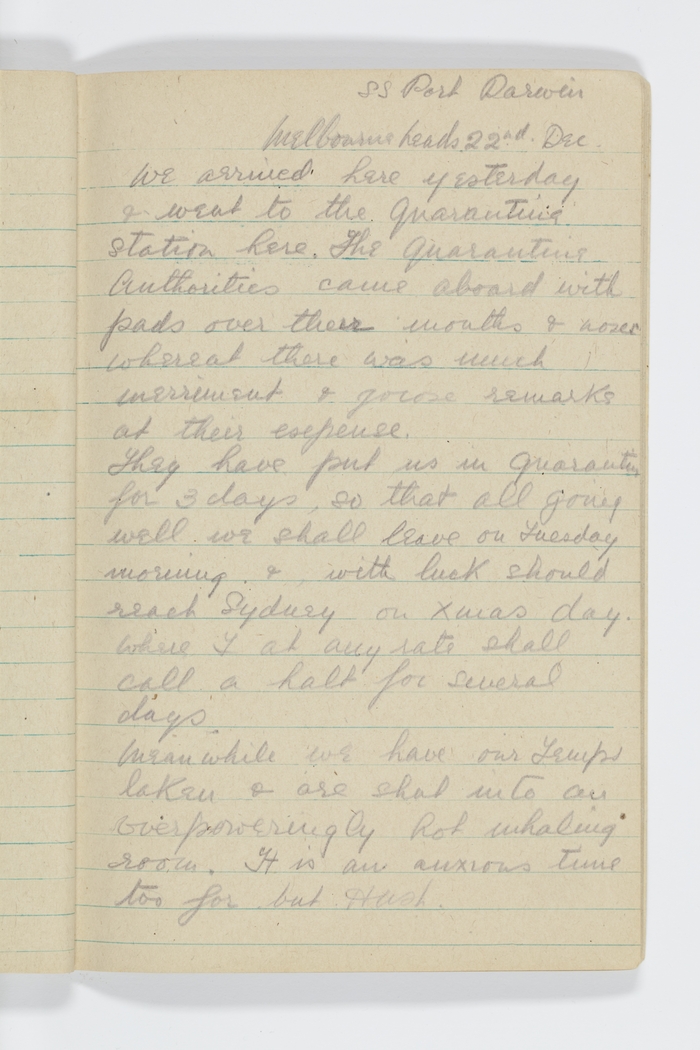 SS Port Darwin
Melbourne heads 22nd. Dec.
We arrived here yesterday
& went to the Quarantine
station here. The Quarantine
Authorities came aboard with
pads over their mouths & noses
whereat there was much
merriment & jocose remarks
at their expense.
They have put us in Quarantine
for 3 days, so that all going
well we shall leave on Tuesday
morning. & with luck should
reach Sydney on Xmas day.
where I at any rate shall
call a halt for several
days
Meanwhile we have our Temps
taken & are shut into an
overpoweringly hot inhaling
room. It is an anxious time
too for but Hush.